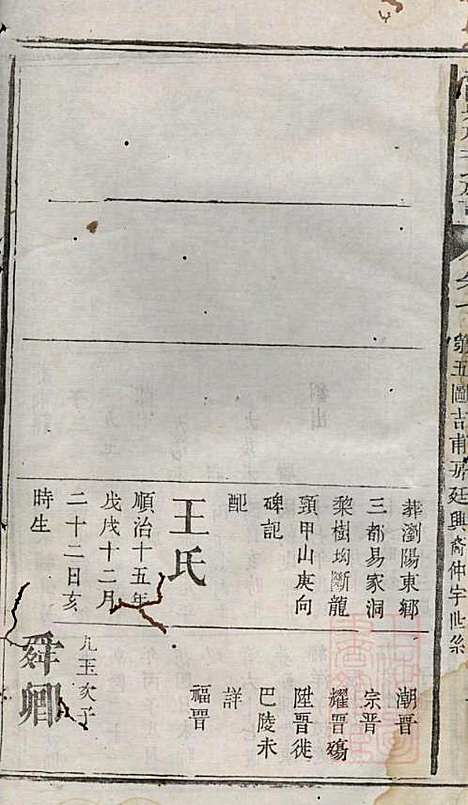 第五圖吉甫房廷興裔仲宇世系
葬瀏陽東鄉
三都易家洞
黎樹坳斷龍
頸甲山庚向
碑記
配
王氏
順治十五年
戊戌十二月
二十二日亥
時生
潮晋
宗晋
耀晋殤
陞晋徙
巴陵未
詳
福晋
九玉次子
舜卿